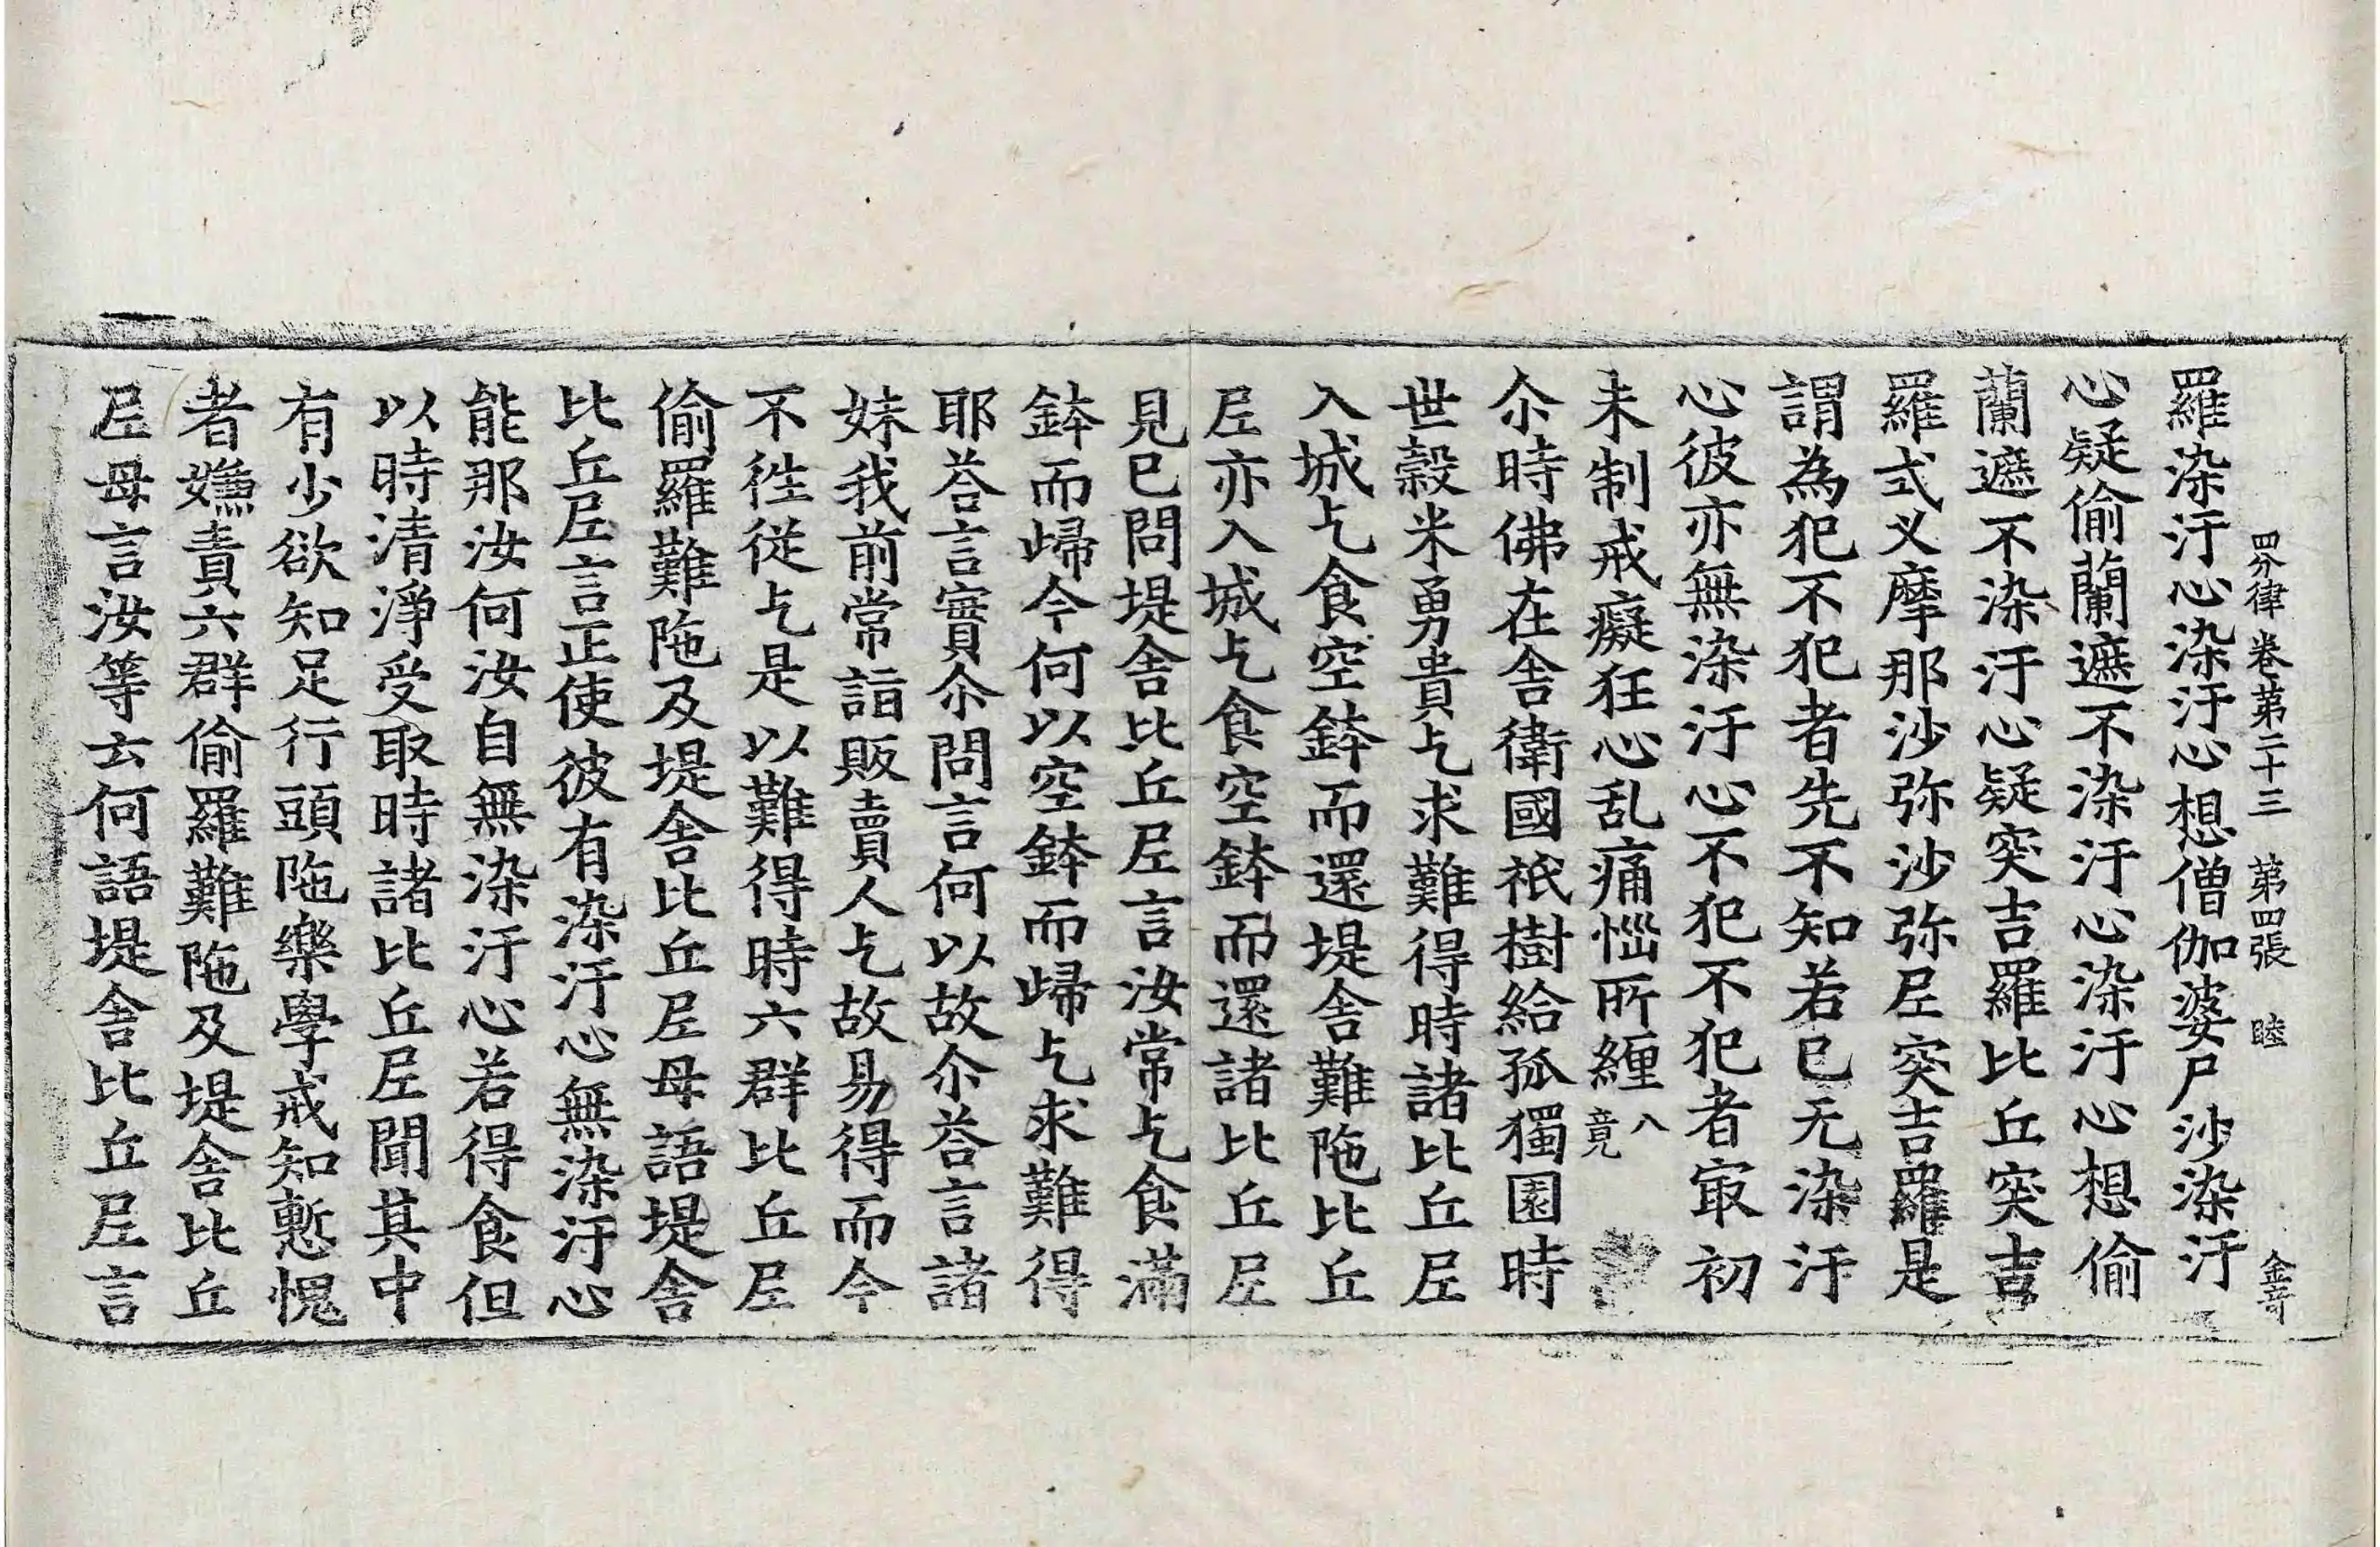 四分律卷第二十三 第四張 睦 金奇
羅染汙心染汙心想僧伽婆尸沙染汙
心疑偷蘭遮不染汙心染汙心想偷
蘭遮不染汙心疑突吉羅比丘突吉
羅式叉摩那沙弥沙弥尼突吉羅是
謂為犯不犯者先不知若已无染汙
心彼亦無染汙心不犯不犯者㝡初
未制戒癡狂心乱痛惱所纏八竟
尒時佛在舎衛國祇樹給孤獨園時
世穀米勇貴乞求難得時諸比丘尼
入城乞食空鉢而還堤舎難陁比丘
尼亦入城乞食空鉢而還諸比丘尼
見已問堤舎比丘尼言汝常乞食滿
鉢而歸今何以空鉢而歸乞求難得
耶荅言實尒問言何以故尒荅言諸
妹我前常詣販賣人乞故易得而今
不徃從乞是以難得時六群比丘尼
偷羅難陁及堤舎比丘尼母語堤舎
比丘尼言正使彼有染汙心無染汙心
能那汝何汝自無染汙心若得食但
以時清淨受取時諸比丘尼聞其中
有少欲知足行頭陁樂學戒知慙愧
者嫌責六群偷羅難陁及堤舎比丘
尼母言汝等云何語堤舎比丘尼言